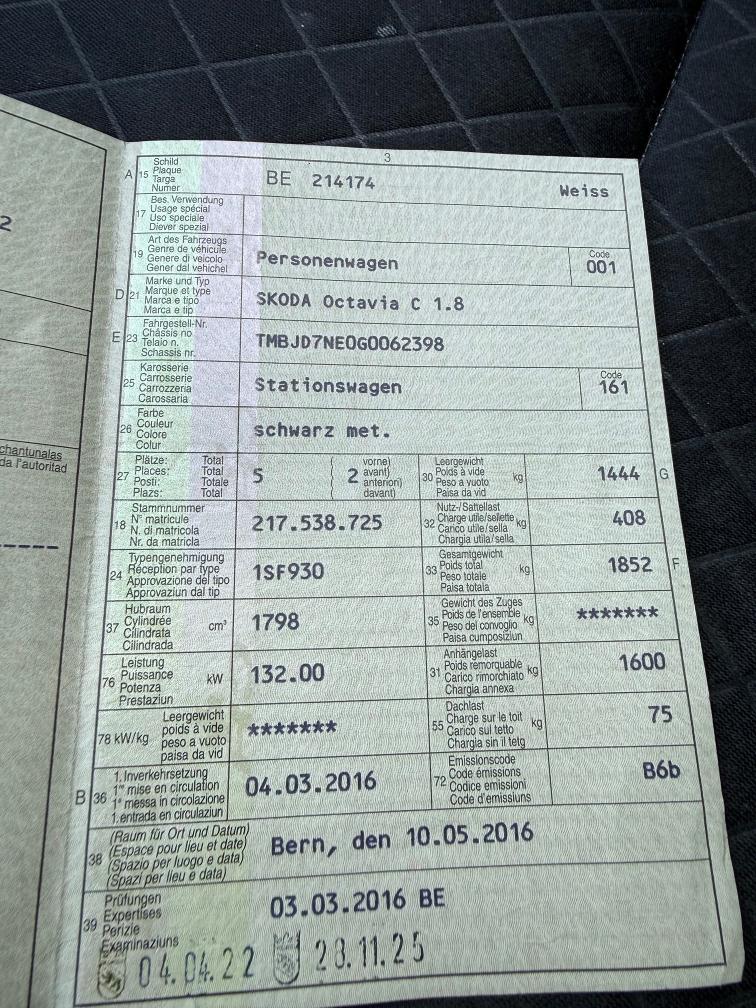 3
A 15 Schild
Plaque
Targa
Numer
BE 214174 Weiss
17 Bes. Verwendung
Usage spécial
Uso speciale
Diever spezial
19 Art des Fahrzeugs
Genre de véhicule
Genere di veicolo
Gener dal vehichel
Personenwagen
Code
001
D 21 Marke und Typ
Marque et type
Marca e tipo
Marca e tip
SKODA Octavia C 1.8
E 23 Fahrgestell-Nr.
Châssis no
Telaio n.
Schassis nr.
TMBJD7NE0G0062398
25 Karosserie
Carrosserie
Carrozzeria
Carossaria
Stationswagen
Code
161
26 Farbe
Couleur
Colore
Colur
schwarz met.
27 Plätze: Total
Places: Total
Posti: Totale
Plazs: Total
5
2 vorne)
avant)
anteriori)
davant)
30 Leergewicht
Poids à vide
Peso a vuoto
Paisa da vid
kg
1444 G
18 Stammnummer
N° matricule
N. di matricola
Nr. da matricla
217.538.725
32 Nutz-/Sattellast
Charge utile/sellette
Carico utile/sella
Chargia utila/sella
kg
408
24 Typengenehmigung
Réception par type
Approvazione del tipo
Approvaziun dal tip
1SF930
33 Gesamtgewicht
Poids total
Peso totale
Paisa totala
kg
1852 F
37 Hubraum
Cylindrée
Cilindrata
Cilindrada
cm³
1798
35 Gewicht des Zuges
Poids de l'ensemble
Peso del convoglio
Paisa cumposiziun
kg
*******
76 Leistung
Puissance
Potenza
Prestaziun
kW
132.00
31 Anhängelast
Poids remorquable
Carico rimorchiato
Chargia annexa
kg
1600
78 kW/kg Leergewicht
poids à vide
peso a vuoto
paisa da vid
*******
55 Dachlast
Charge sur le toit
Carico sul tetto
Chargia sin il tetg
kg
75
B 36 1. Inverkehrsetzung
1re mise en circulation
1a messa in circolazione
1. entrada en circulaziun
04.03.2016
72 Emissionscode
Code émissions
Codice emissioni
Code d'emissiuns
B6b
38 (Raum für Ort und Datum)
(Espace pour lieu et date)
(Spazio per luogo e data)
(Spazi per lieu e data)
Bern, den 10.05.2016
39 Prüfungen
Expertises
Perizie
Examinaziuns
03.03.2016 BE
04.04.22 28.11.25
2
chantunalas
da l'autoritad